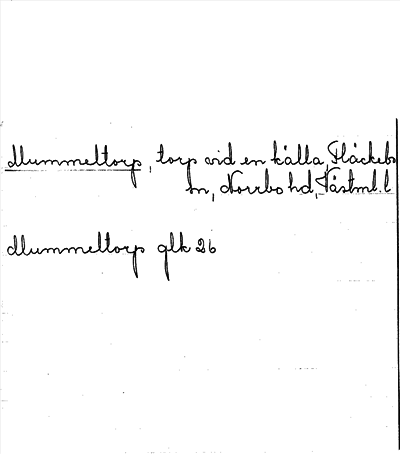 Mummeltorp, torp vid en källa, Fläckebo
sn, Norrbo hd, Västml. l
Mummeltorp glk 26